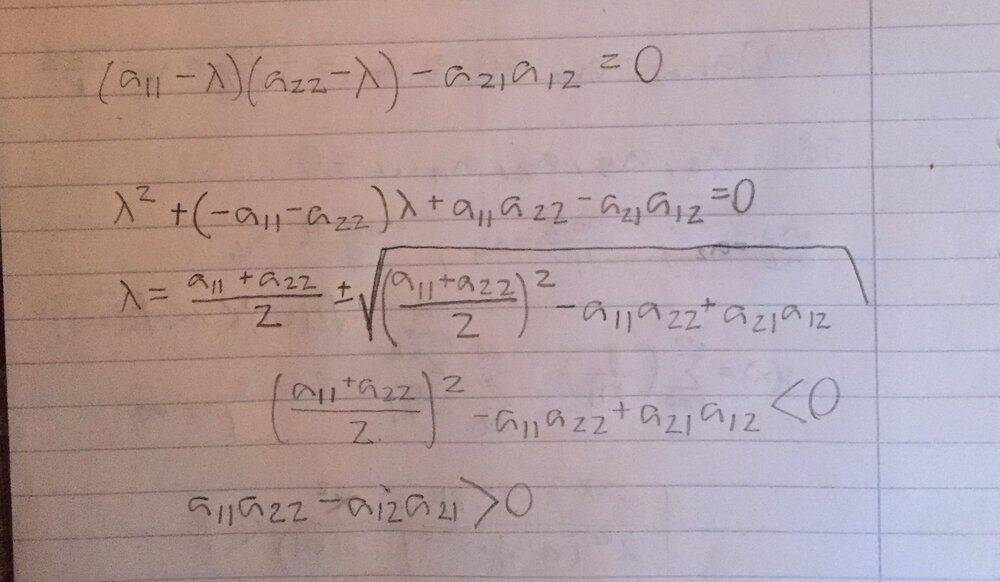 (a₁₁ − λ)(a₂₂ − λ) − a₂₁a₁₂ = 0
λ² + (−a₁₁ − a₂₂)λ + a₁₁a₂₂ − a₂₁a₁₂ = 0
λ = (a₁₁ + a₂₂)/2 ± √(((a₁₁ + a₂₂)/2)² − a₁₁a₂₂ + a₂₁a₁₂)
((a₁₁ + a₂₂)/2)² − a₁₁a₂₂ + a₂₁a₁₂ < 0
a₁₁a₂₂ − a₁₂a₂₁ > 0